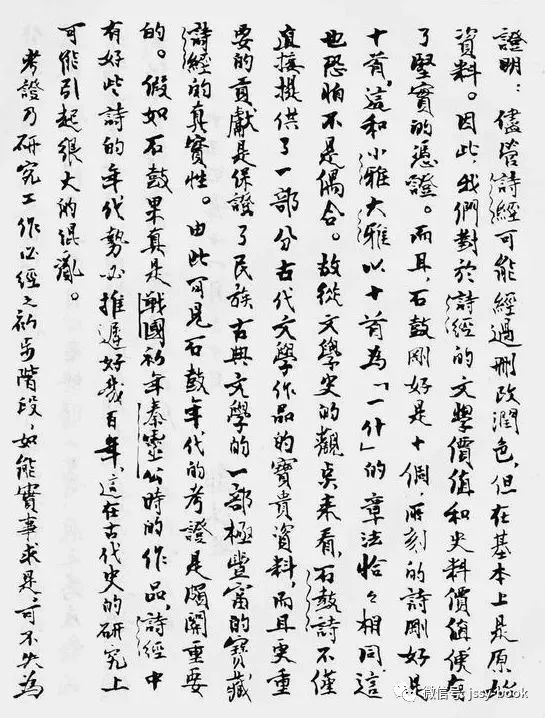 證明：儘管詩經可能經過刪改潤色，但在基本上是原始
資料。因此，我們對於詩經的文學價值和史料價值便有
了堅實的憑證。而且，石鼓剛好是十個，所刻的詩剛好是
十首，這和小雅大雅以十首為「一什」的章法恰々相同，這
也恐怕不是偶合。故從文學史的觀點來看，石鼓詩不僅
直接提供了一部分古代文學作品的寶貴資料，而且更重
要的貢獻是保證了民族古典文學的一部極豐富的寶藏
詩經的真實性。由此可見石鼓年代的考證是頗關重要
的。假如石鼓果真是戰國初年秦靈公時的作品，詩經中
有好些詩的年代勢必推遲好幾百年，這在古代史的研究上
可能引起很大的混亂。
考證乃研究工作必經之初步階段，如能實事求是，可不失為
微信号: jssy-book